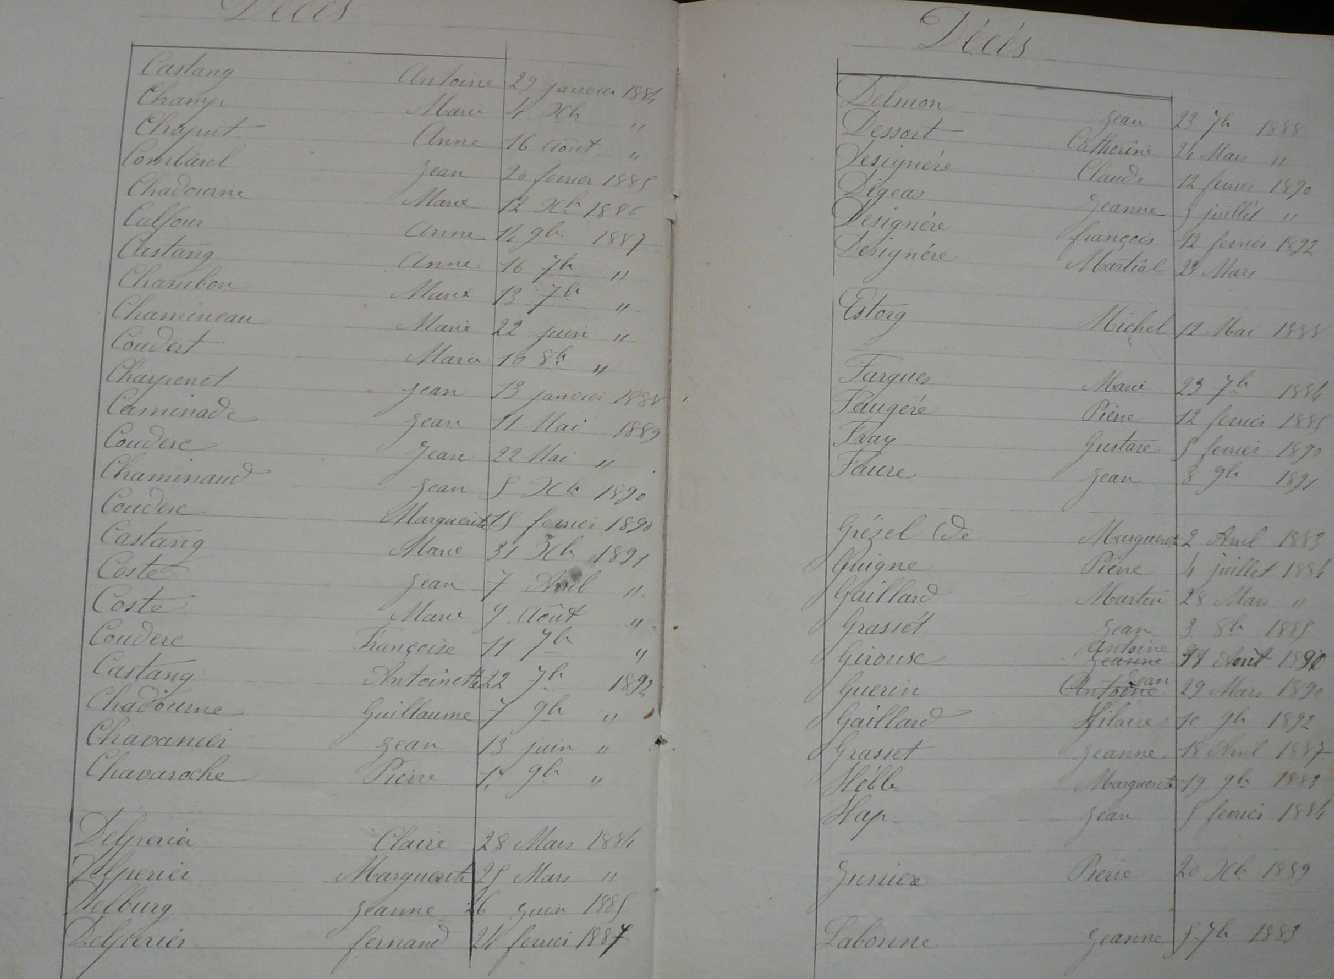 Décès
Castang Antoine 29 janvier 1884
Champ Marie 4 Xb "
Chaput Anne 16 Août "
Combarel Jean 20 fevrier 1885
Chadourne Marie 12 Xb 1886
Anne 14 9b 1887
Castang Anne 16 7b "
Chambon Marie 13 7b "
Chamineau Marie 22 juin "
Coudert Marie 16 8b "
Charpenet Jean 13 janvier 1888
Caminade Jean 11 Mai 1889
Couderc Jean 22 Mai "
Chaminaud Jean 5 Xb 1890
Couderc Marguerite 18 fevrier 1890
Castang Marie 31 Xb 1891
Coste Jean 7 Avril "
Coste Marie 9 Août "
Couderc Françoise 11 7b "
Castang Antoinette 22 7b 1892
Chadourne Guillaume 7 9b "
Chavanier Jean 13 juin "
Chavaroche Pierre 9b "
Delperier Claire 28 Mars 1884
Delperier Marguerite 25 Mars "
Delburg Jeanne 26 Juin 1885
Delperier fernand 24 fevrier 1887
Décès
Delmon Jean 23 7b 1888
Dessort Catherine 24 Mars "
Designéré Claude 12 fevrier 1890
Dégeas Jeanne 5 juillet "
Designéré françois 12 fevrier 1892
Designére Martial 29 Mars
Estorg Michel 12 Mai 1888
Fargues Marie 23 7b 1884
Faugéré Pierre 12 fevrier 1885
Fray Gustave 5 fevrier 1890
Faure Jean 8 9b 1891
Grézel de Marguerite 2 Avril 1883
Guigne Pierre 4 juillet 1884
Gaillard Martin 28 Mars "
Grasset Jean 3 8b 1885
Antoine
Girouse Jeanne Août 1890
Jean
Guerin Antoine 29 Mars 1890
Gaillard Hilaire 10 9b 1892
Grasset Jeanne 18 Avril 1887
Hébli Marguerite 19 9b 1883
Hap Jean 5 fevrier 1884
Junier Pierre 20 Xb 1889
Labonne Jeanne 5 7b 1883